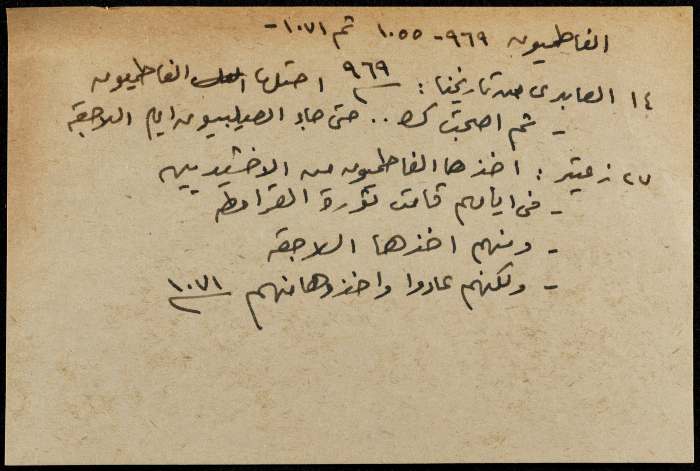 الفاطميون ٩٦٩- ١٠٥٥ ثم ١٠٧١-
١٤ العابدى من تاريخنا : ٩٦٩ احتلها الفاطميون
- ثم اصبحت .. حتى جاء الصليبيون ايام السلاجقة
٢٧ زعيتر : اخذها الفاطميون من الاخشيديين
- فى ايامهم قامت ثورة القرامطة
- ومنهم اخذها السلاجقه
- ولكنهم عادوا واخذوها منهم ١٠٧١